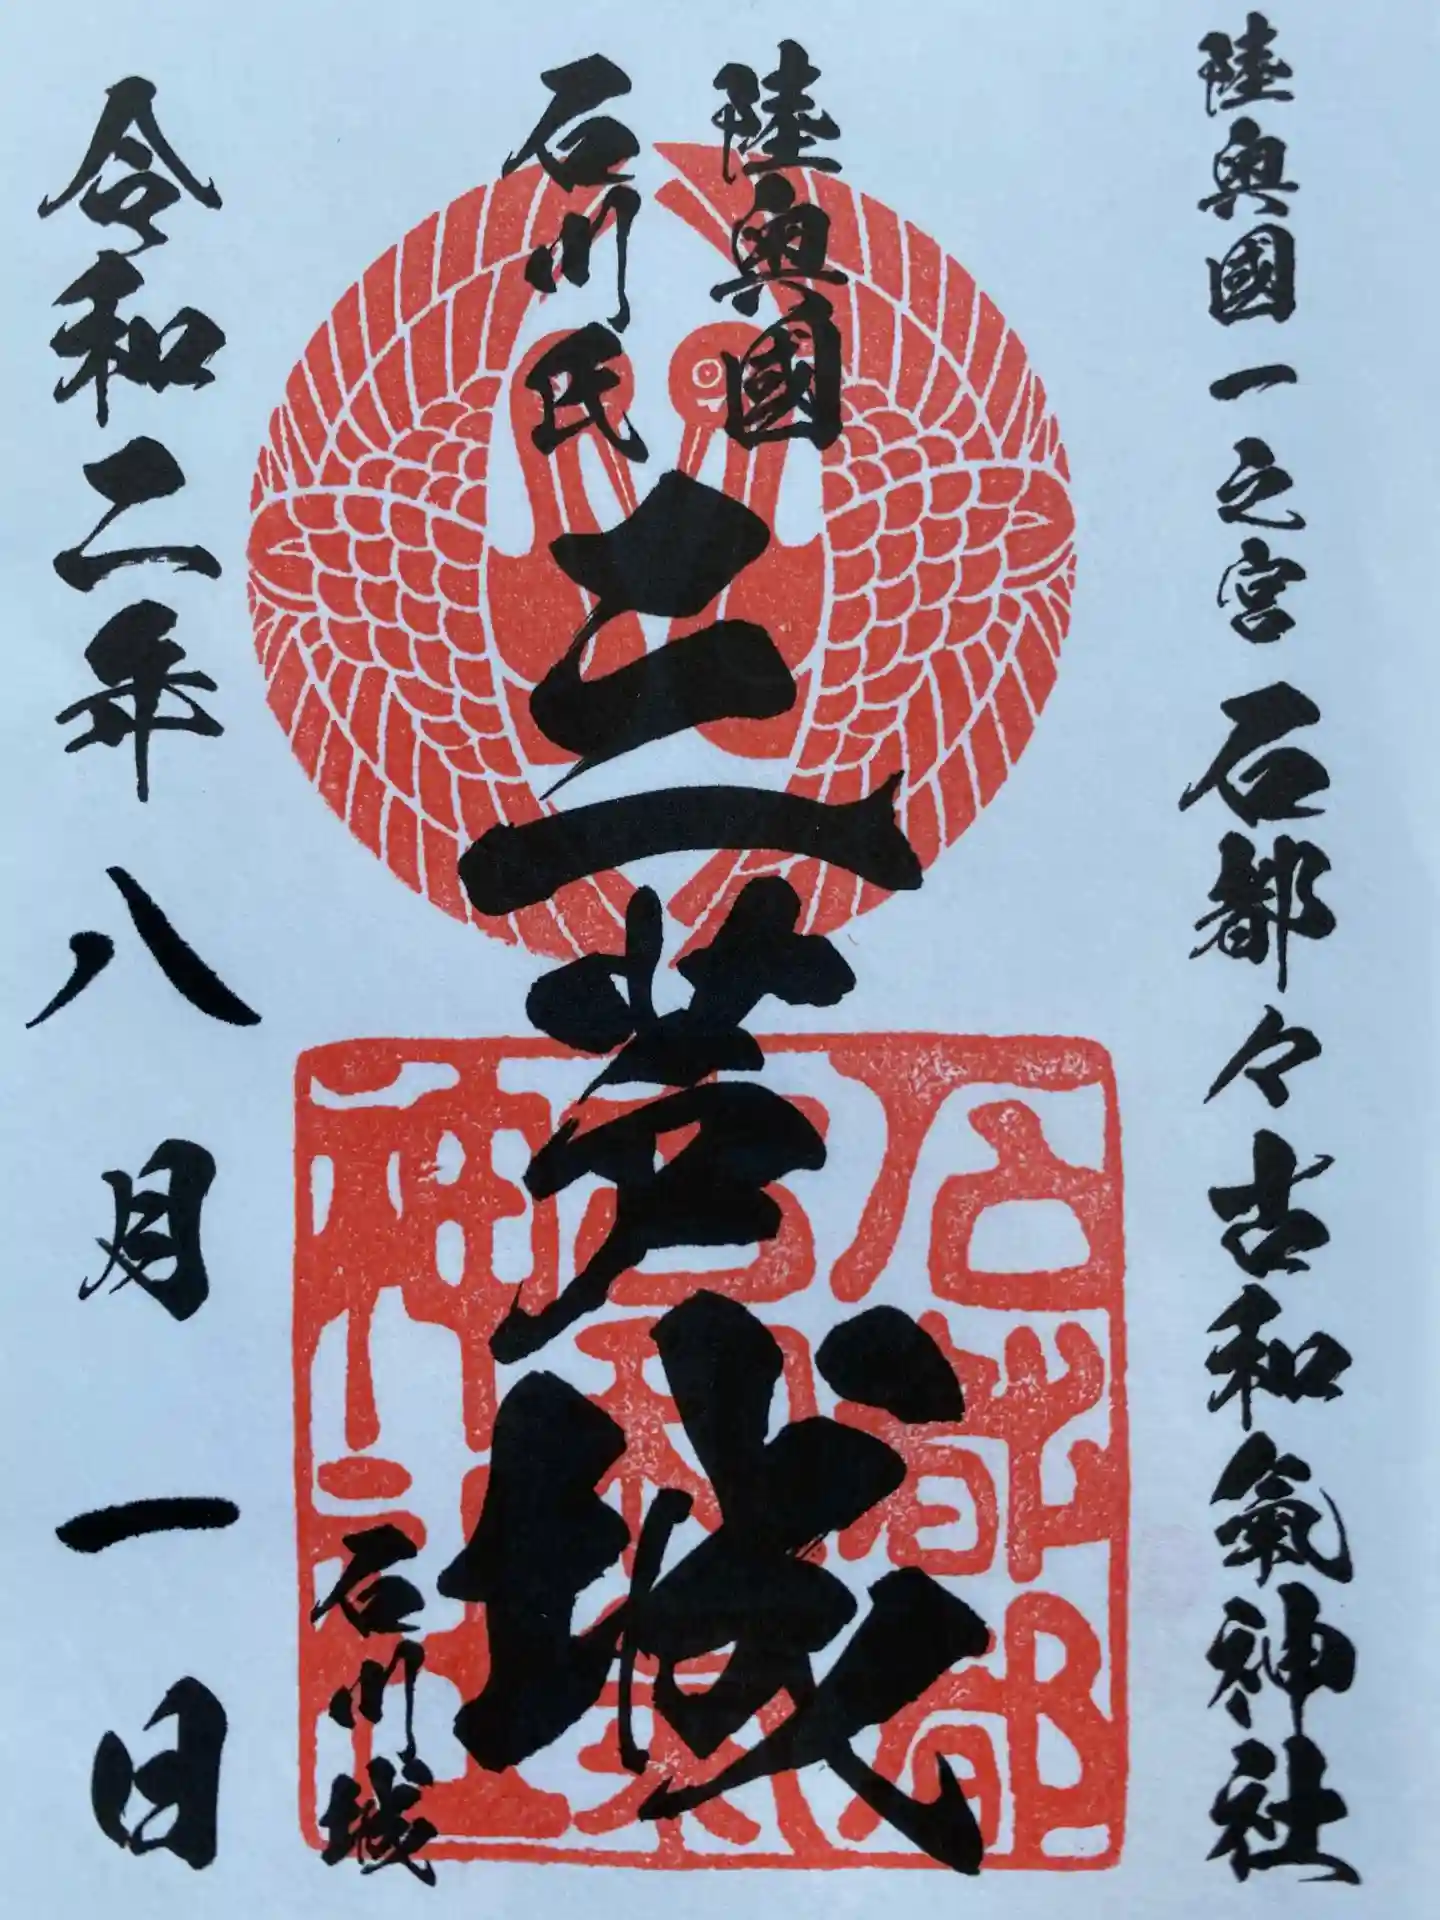 陸奥國一之宮 石都々古和氣神社
陸奥國
石川氏
三芦城
石川城
令和二年八月一日
石都々古和氣神社